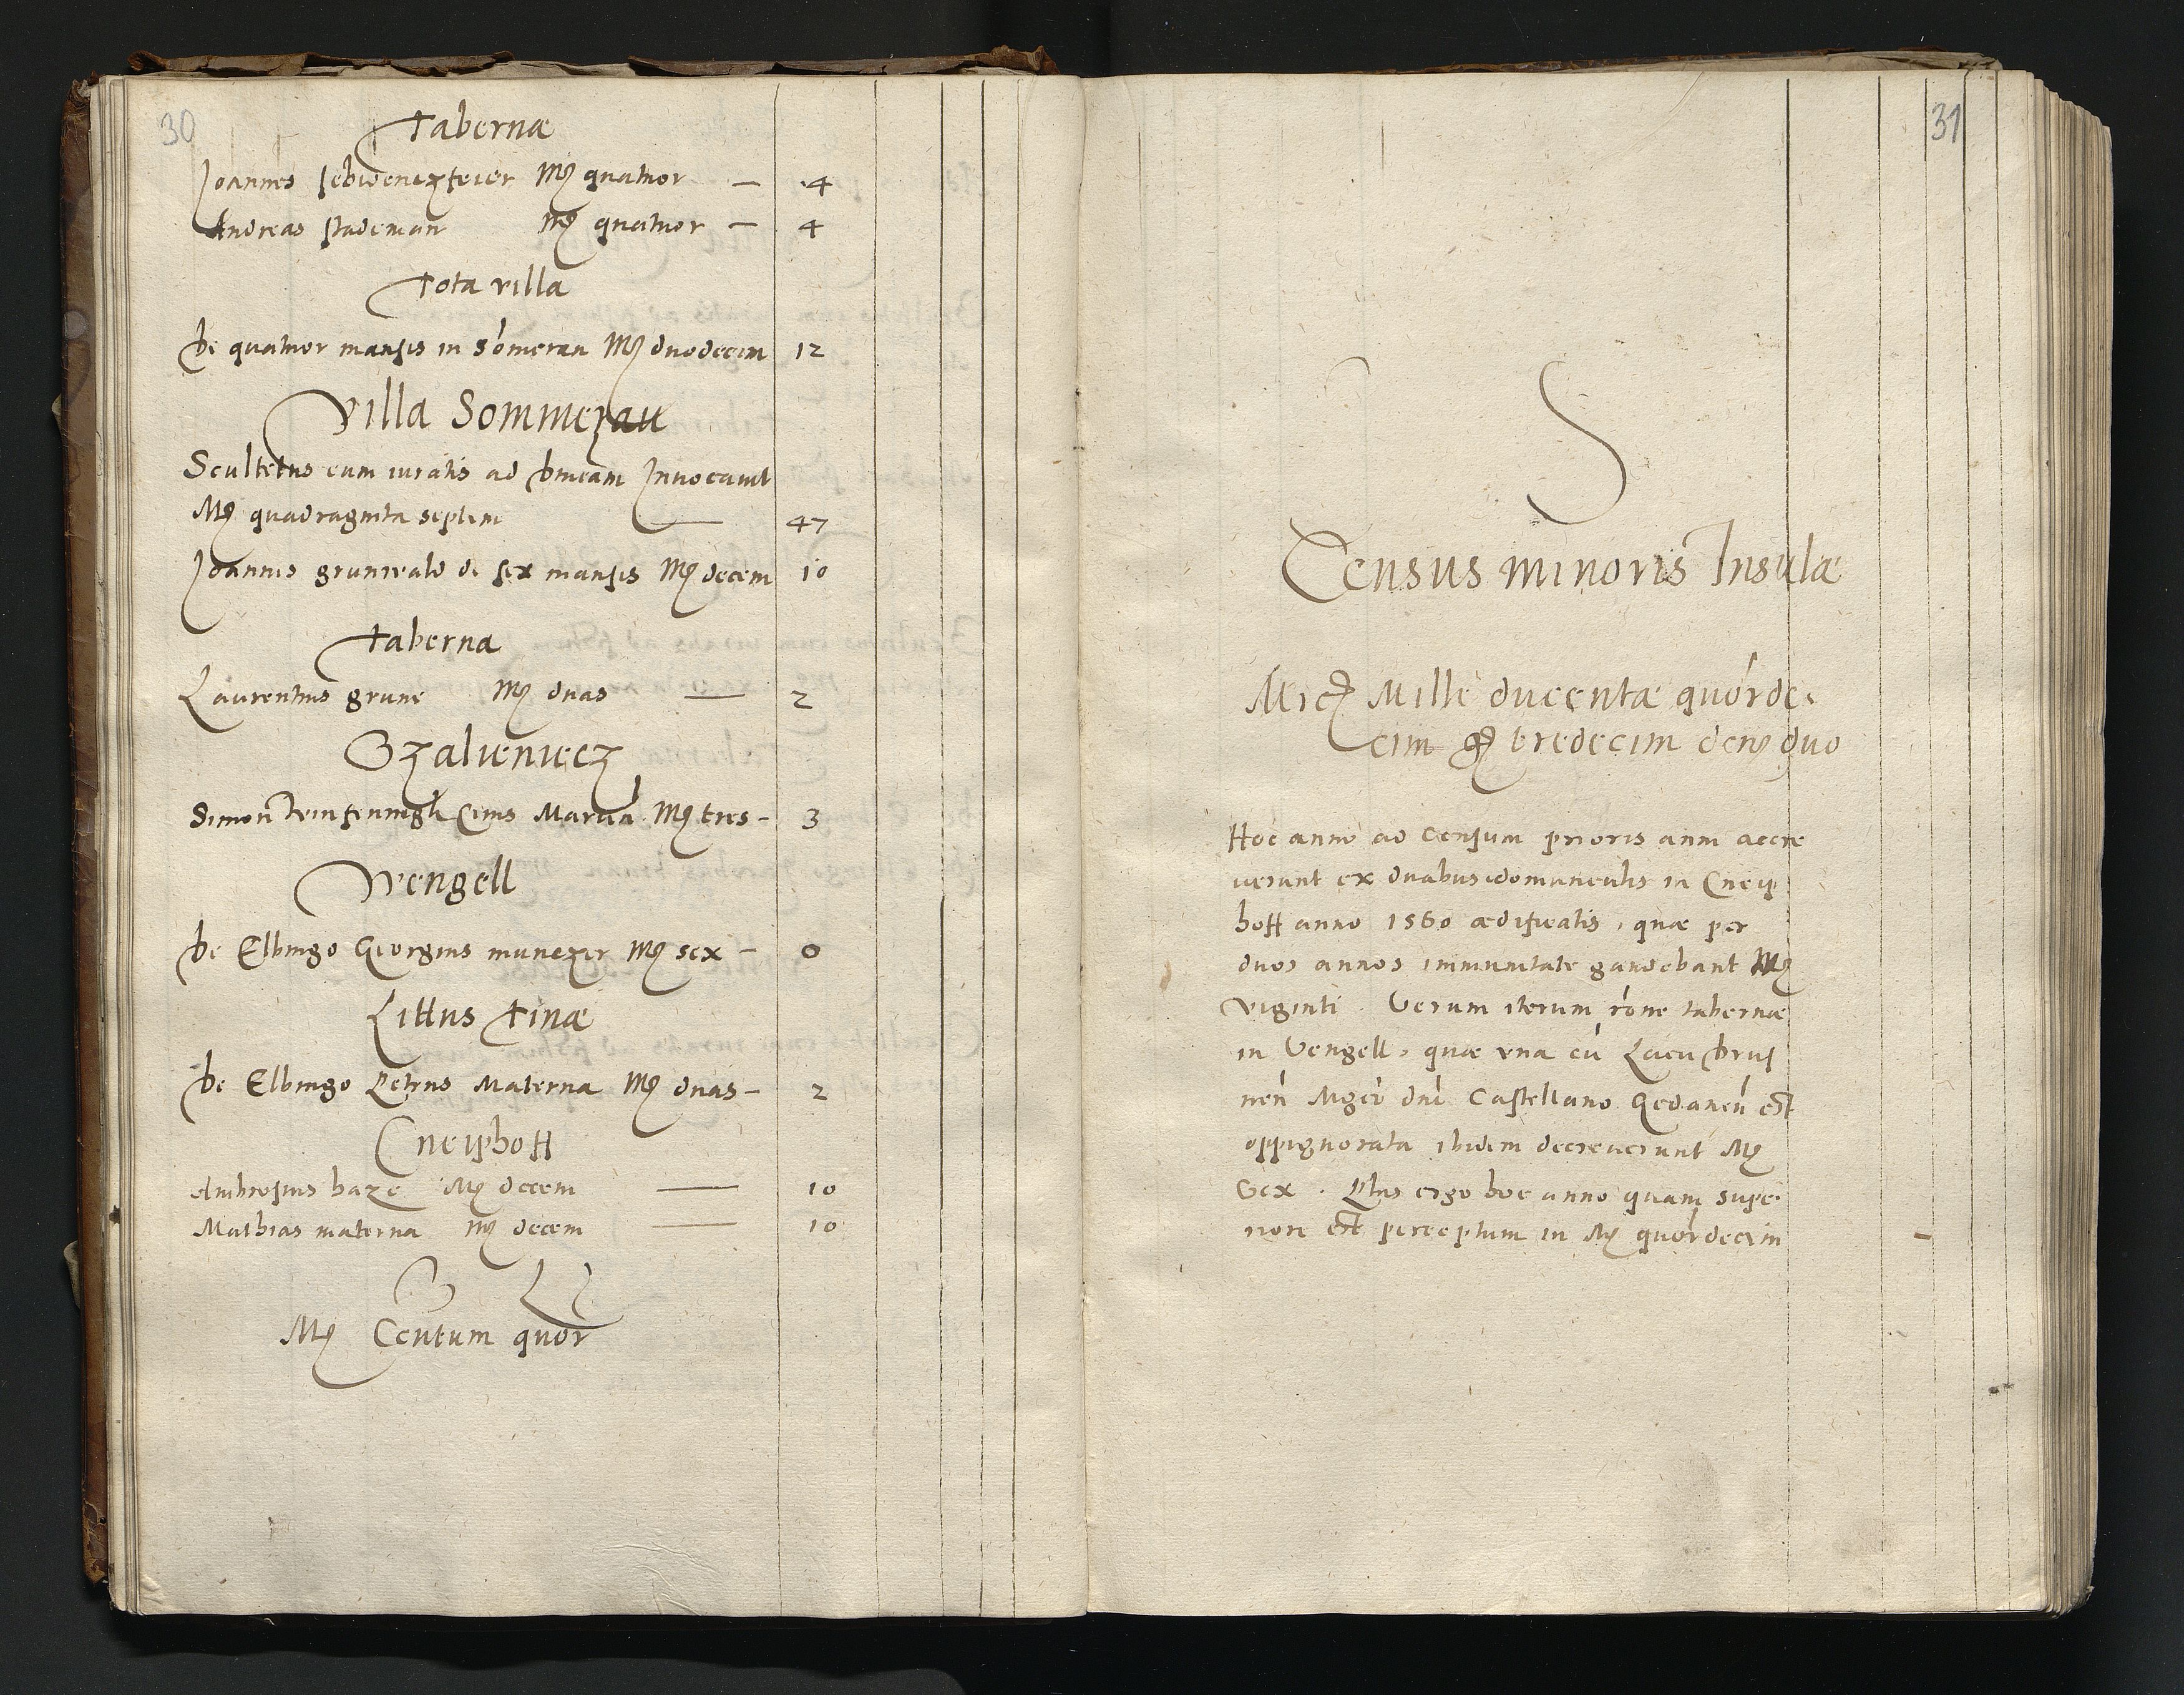 30
Tabernæ
Joannes Mꝫ quatuor — 4
Andreas stademan Mꝫ quatuor — 4
Tota villa
De quatuor mansis in Sōmerau Mꝫ duodecim 12
Villa Sommerau
Scultetus cum iuratis ad Dnicam Invocavit
Mꝫ quadraginta septem — 47
Joannes grunwald de sex mansis Mꝫ decem 10
Taberna
Laurentius grune Mꝫ duas — 2
Szalieniecz
Simon Civis Mꝫ tres - 3
Wengell
De Elbingo Georgius munczer Mꝫ sex - 0
Littus Tinæ
De Elbingo Petrus Materna Mꝫ duas - 2
Cneiphoff
Ambrosius haze Mꝫ decem — 10
Mathias materna Mꝫ decem — 10
S Lr
Mꝫ Centum quor
31
S
Census minoris Insulæ
Mrcꝫ Mille ducentæ quorde-
cim gꝫ tredecim denꝫ duo
Hoc anno ad censum prioris anni accre
verunt ex duabus domunculis in Cneip
hoff anno 1560 ædificatis, quæ per
duos annos immunitate gaudebant Mꝫ
viginti. Verum iterum rōne tabernæ
in Vengell, quæ una cū Lacu Drus
nen̄ Mgci dn̄i Castellano Gedanen̄ est
oppignorata ibidem decreverunt Mꝫ
Sex. Plus ergo hoc anno quam supe-
riore est perceptum in Mꝫ quordecim -